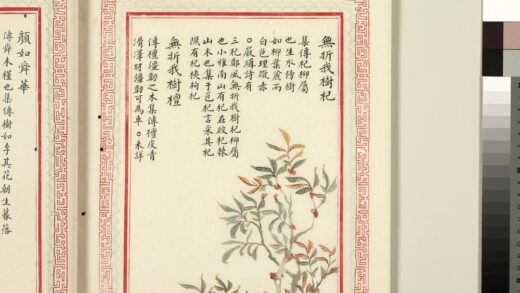 無折我樹杞
集傳杞柳屬
也生水傍樹
如柳葉麄而
白色理微赤
○嚴緝詩有
三杞鄭風無折我樹杞柳屬
也小雅南山有杞在彼杞棘
山木也集于苞杞言采其杞
隰有杞桋枸杞
無折我樹檀
傳檀彊韌之木集傳檀皮青
滑澤材彊韌可為車○未詳
顏如舜華
傳舜木槿也集傳樹如李其花朝生暮落